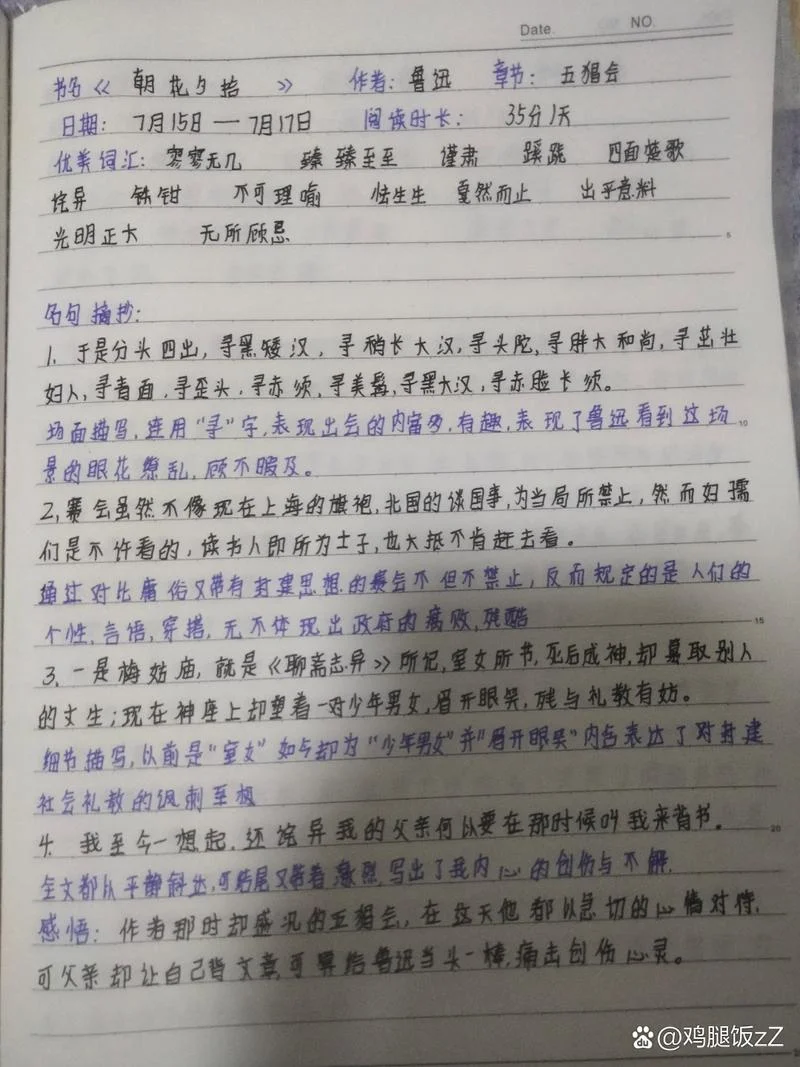 Date. NO.
书名《 朝花夕拾 》 作者:鲁迅 章节: 五猖会
日期: 7月15日 — 7月17日 阅读时长: 35分1天
优美词汇: 寥寥无几 臻臻至至 谨肃 蹊跷 四面楚歌
诧异 铁钳 不可理喻 怯生生 戛然而止 出乎意料
光明正大 无所顾忌
5
名句摘抄:
1. 于是分头四出,寻黑矮汉,寻梢长大汉,寻头陀,寻胖大和尚,寻茁壮
妇人,寻青面,寻歪头,寻赤须,寻美髯,寻黑大汉,寻赤脸长须。
场面描写,连用“寻”字,表现出会的内富多,有趣,表现了鲁迅看到这场
10
景的眼花缭乱,顾不暇及。
2,赛会虽然不像现在上海的旗袍,北国的谈国事,为当局所禁止,然而妇孺
们是不许看的,读书人即所为士子,也大抵不肯赶去看。
通过对比庸俗又带有封建思想的赛会不但不禁止,反而规定的是人们的
个性,言语,穿搭,无不体现出政府的腐败,残酷
15
3,一是梅姑庙,就是《聊斋志异》所记,室女所书,死后成神,却篡取别人
的丈生;现在神座上却塑着一对少年男女,眉开眼笑,残与礼教有妨。
细节描写,以前是“室女”如今却为“少年男女”并“眉开眼笑”内含表达了对封建
社会礼教的讽刺至极
4. 我至今一想起,还诧异我的父亲何以要在那时候叫我来背书。
20
全文都从平静斜述,可结尾又带着激烈,写出了我内心的创伤与不解.
感悟: 作者那时却盛况的五猖会,在这天他都以急切的心情对待.
可父亲却让自己背文章,可算给鲁迅当头一棒,痛击创伤心灵。
@鸡腿饭zZ